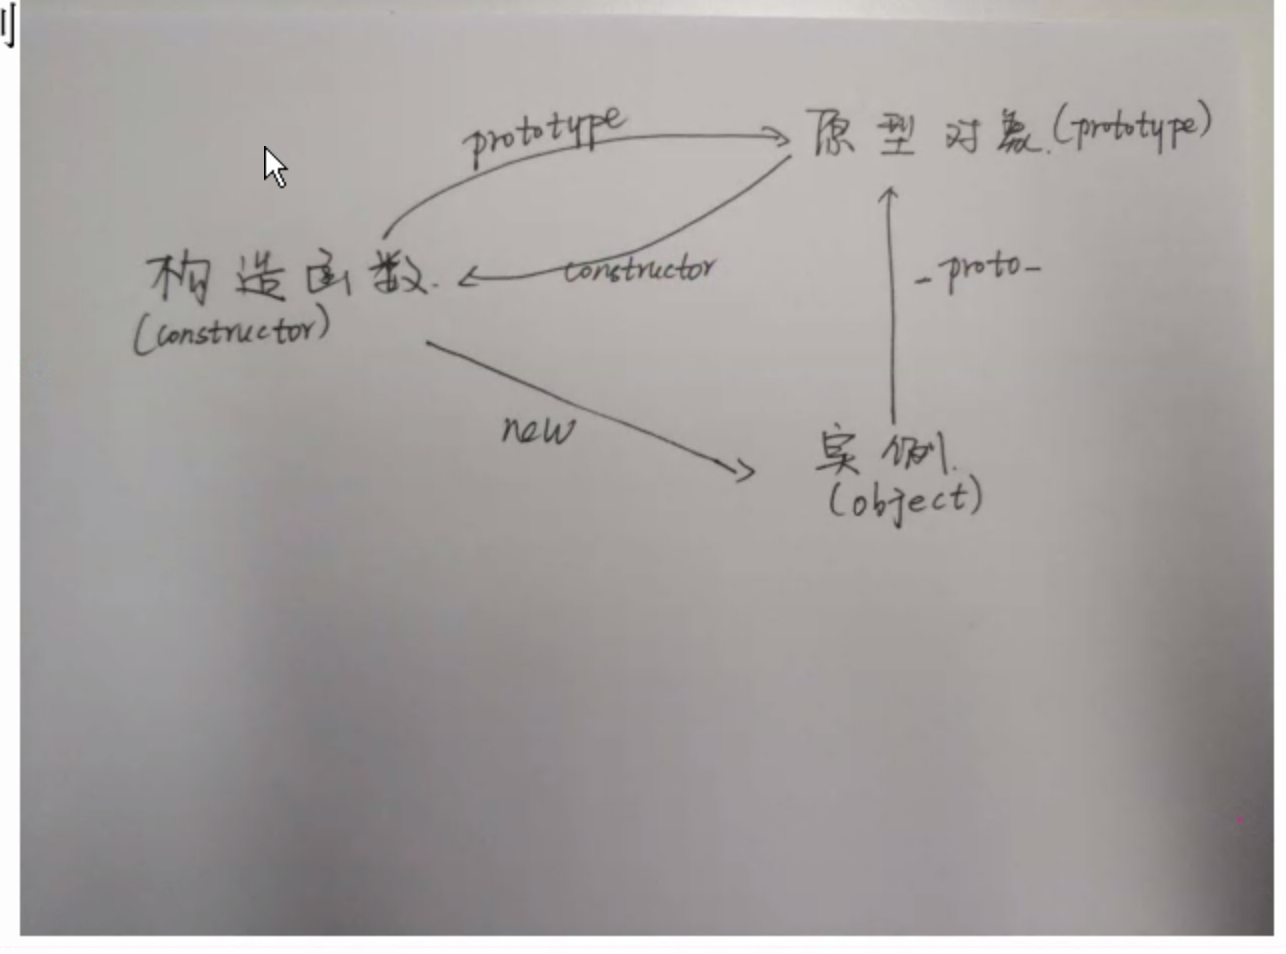 刂
prototype
原型对象.(prototype)
构造函数.
(constructor)
constructor
_proto_
new
实例.
(object)